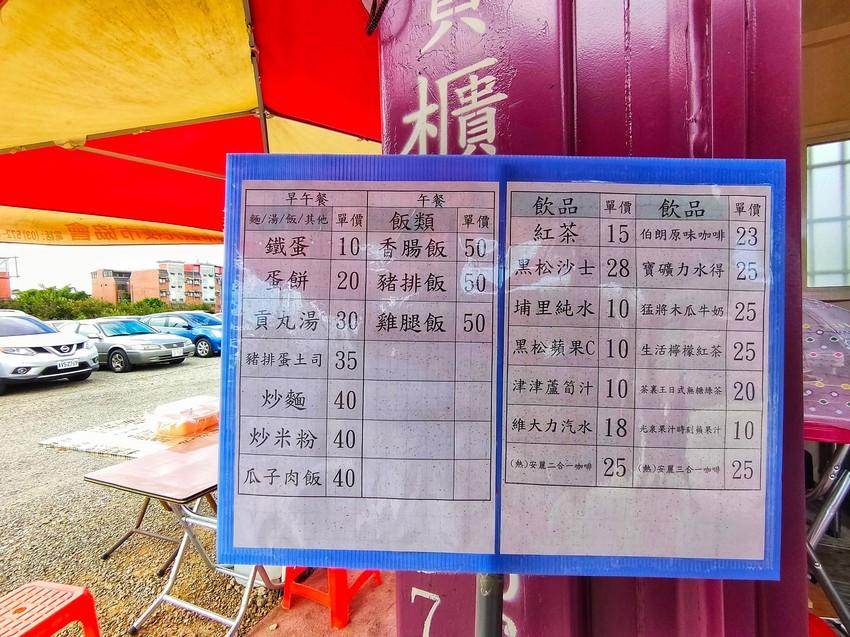 貨櫃
早午餐 午餐
麵/湯/飯/其他 單價 飯類 單價
鐵蛋 10 香腸飯 50
蛋餅 20 豬排飯 50
貢丸湯 30 雞腿飯 50
豬排蛋土司 35
炒麵 40
炒米粉 40
瓜子肉飯 40
飲品 單價 飲品 單價
紅茶 15 伯朗原味咖啡 23
黑松沙士 28 寶礦力水得 25
埔里純水 10 猛將木瓜牛奶 25
黑松蘋果C 10 生活檸檬紅茶 25
津津蘆筍汁 10 茶裏王日式無糖綠茶 20
維大力汽水 18 光泉果汁時刻蘋果汁 10
(熱)安麗二合一咖啡 25 (熱)安麗三合一咖啡 25
7